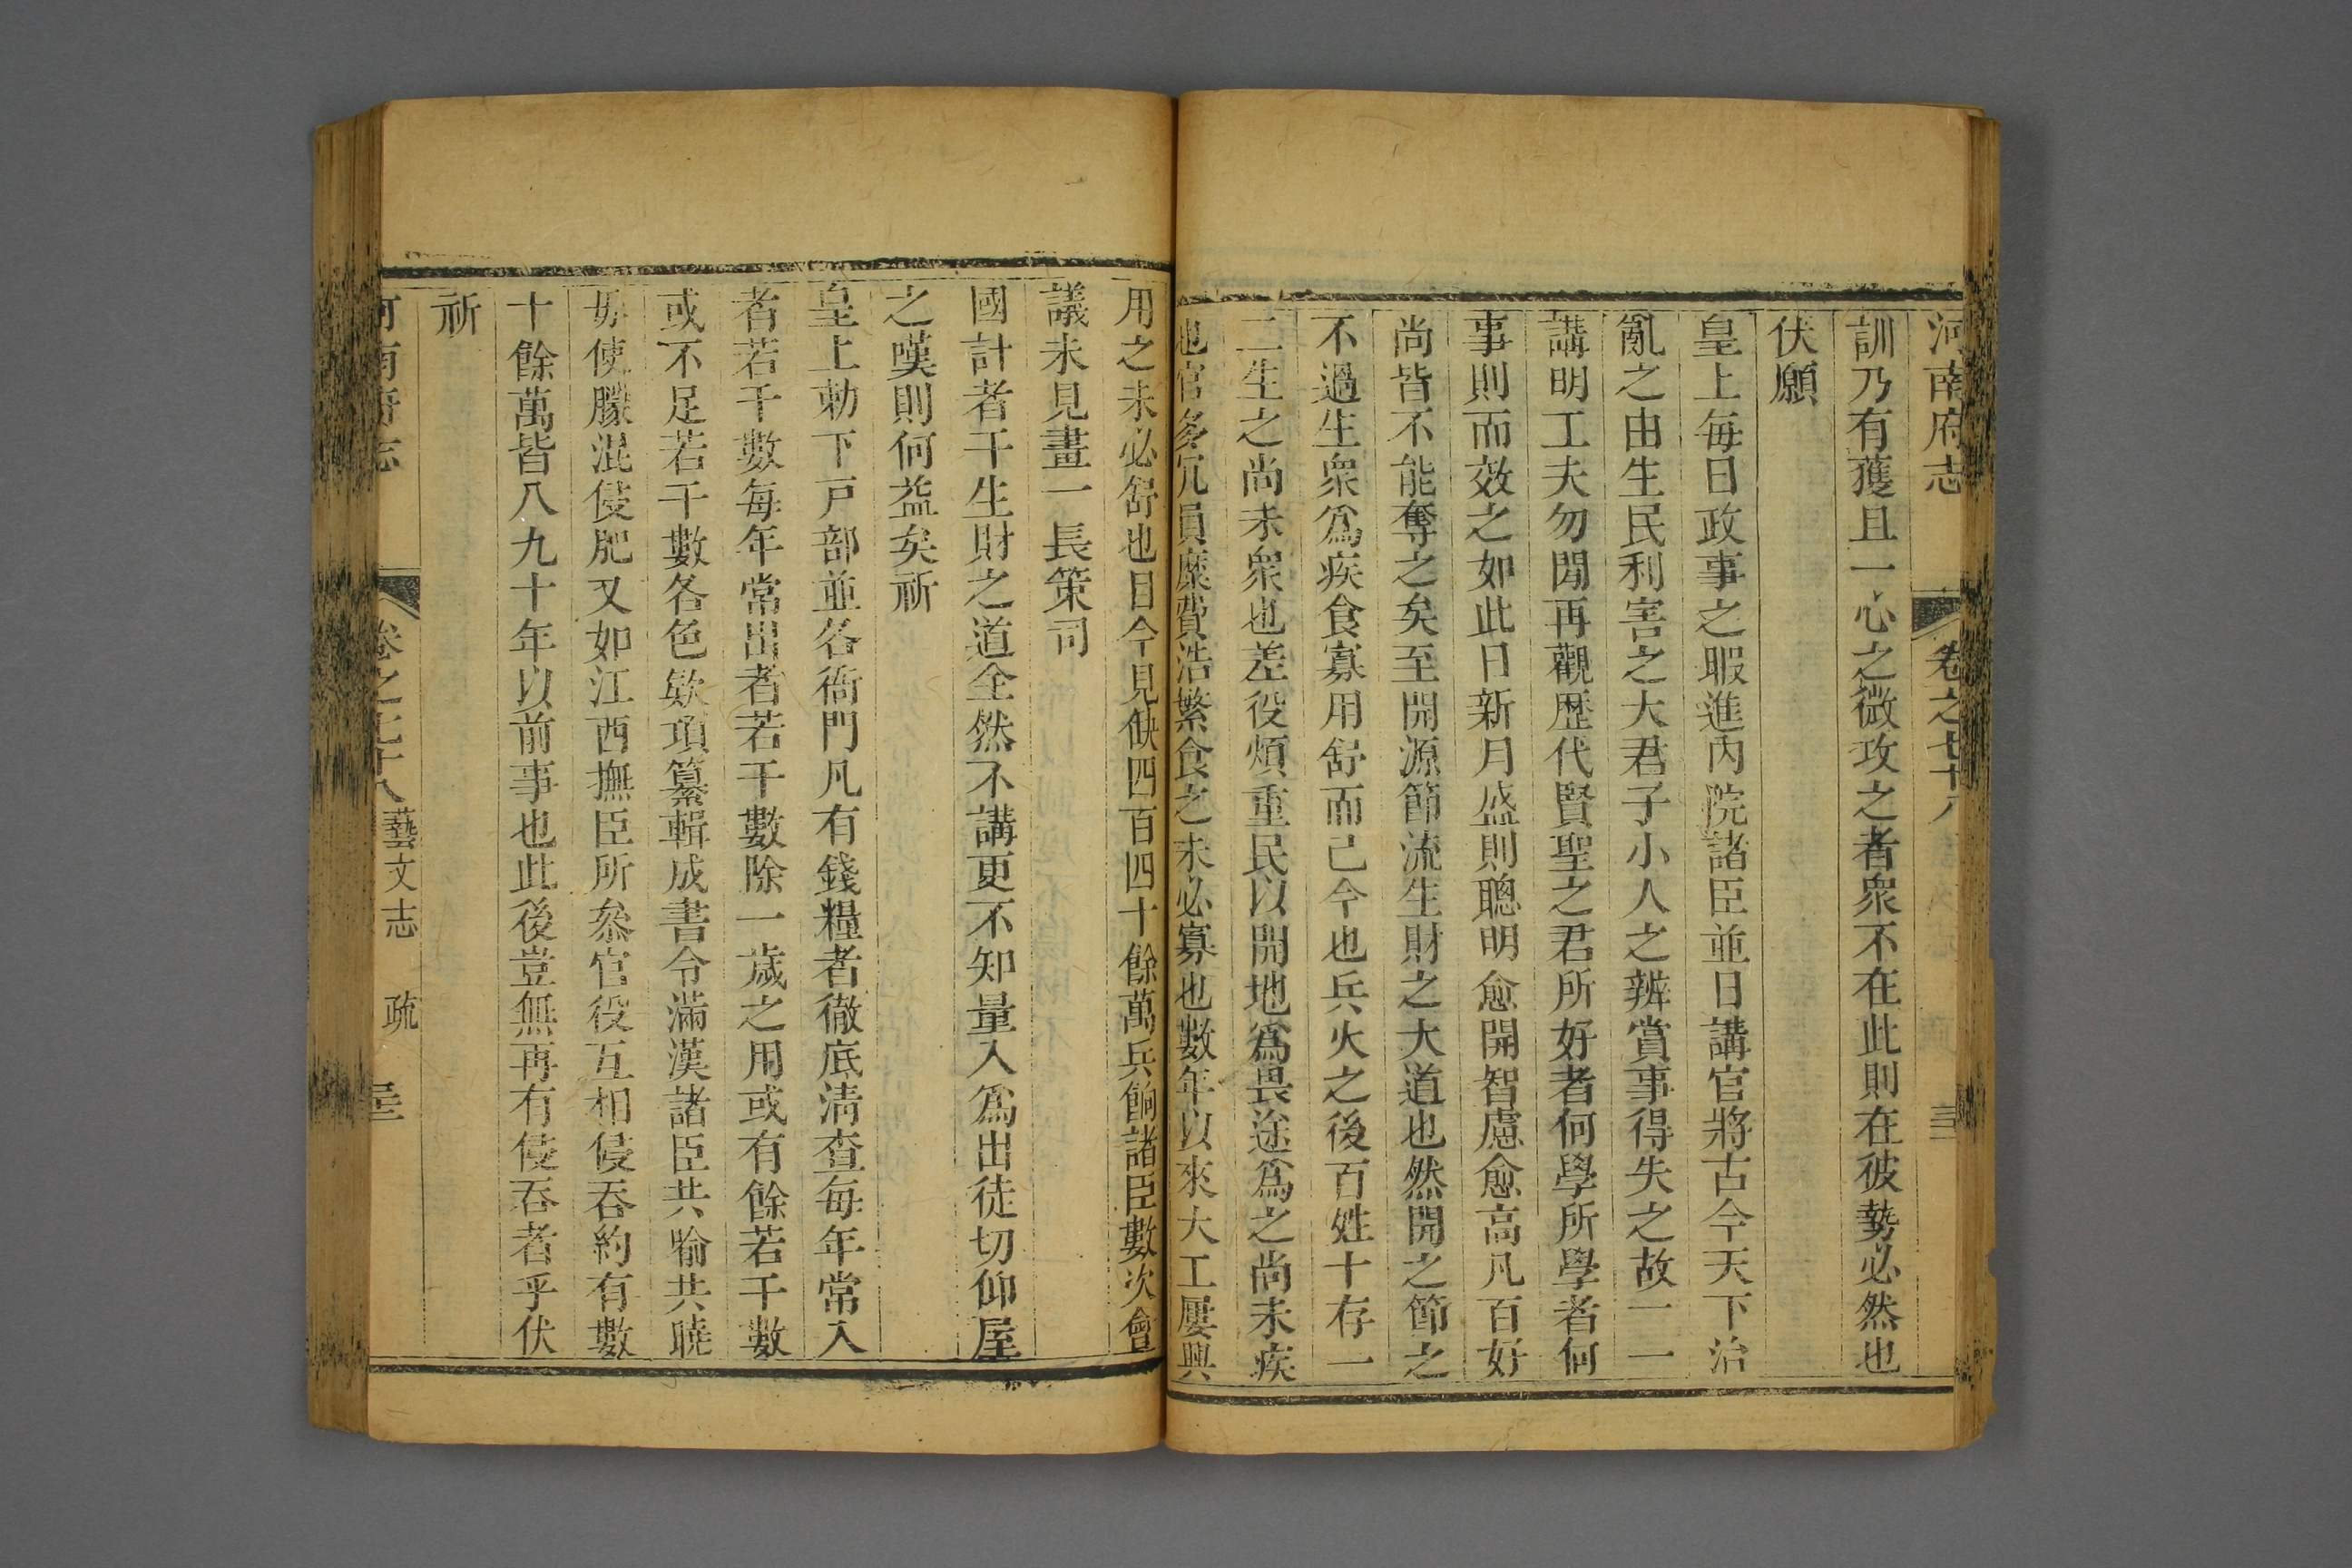 河南府志 卷之七十八
訓乃有獲且一心之微攻之者衆不在此則在彼勢必然也
伏願
皇上每日政事之暇進內院諸臣並日講官將古今天下治
亂之由生民利害之大君子小人之辨賞事得失之故一一
講明工夫勿間再觀歷代賢聖之君所好者何學所學者何
事則而效之如此日新月盛則聰明愈開智慮愈高凡百好
尚皆不能奪之矣至開源節流生財之大道也然開之節之
不過生衆爲疾食寡用舒而已今也兵火之後百姓十存一
二生之尚未衆也差役煩重民以開地爲畏途爲之尚未疾
也官多冗員糜費浩繁食之未必寡也數年以來大工屢興
用之未必舒也目今見缺四百四十餘萬兵餉諸臣數次會
議未見畫一長策司
國計者干生財之道全然不講更不知量入爲出徒切仰屋
之嘆則何益矣祈
皇上勅下戸部並各衙門凡有錢糧者徹底清查每年常入
者若干數每年常出者若干數除一歲之用或有餘若干數
或不足若干數各色欵項纂輯成書令滿漢諸臣共喻共曉
毋使朦混侵肥又如江西撫臣所叅官役互相侵吞約有數
十餘萬皆八九十年以前事也此後豈無再有侵吞者乎伏
祈
河南府志 卷之七十八 藝文志 疏